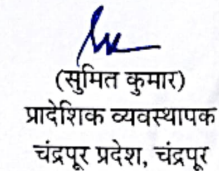 (सुमित कुमार)
प्रादेशिक व्यवस्थापक
चंद्रपूर प्रदेश, चंद्रपूर